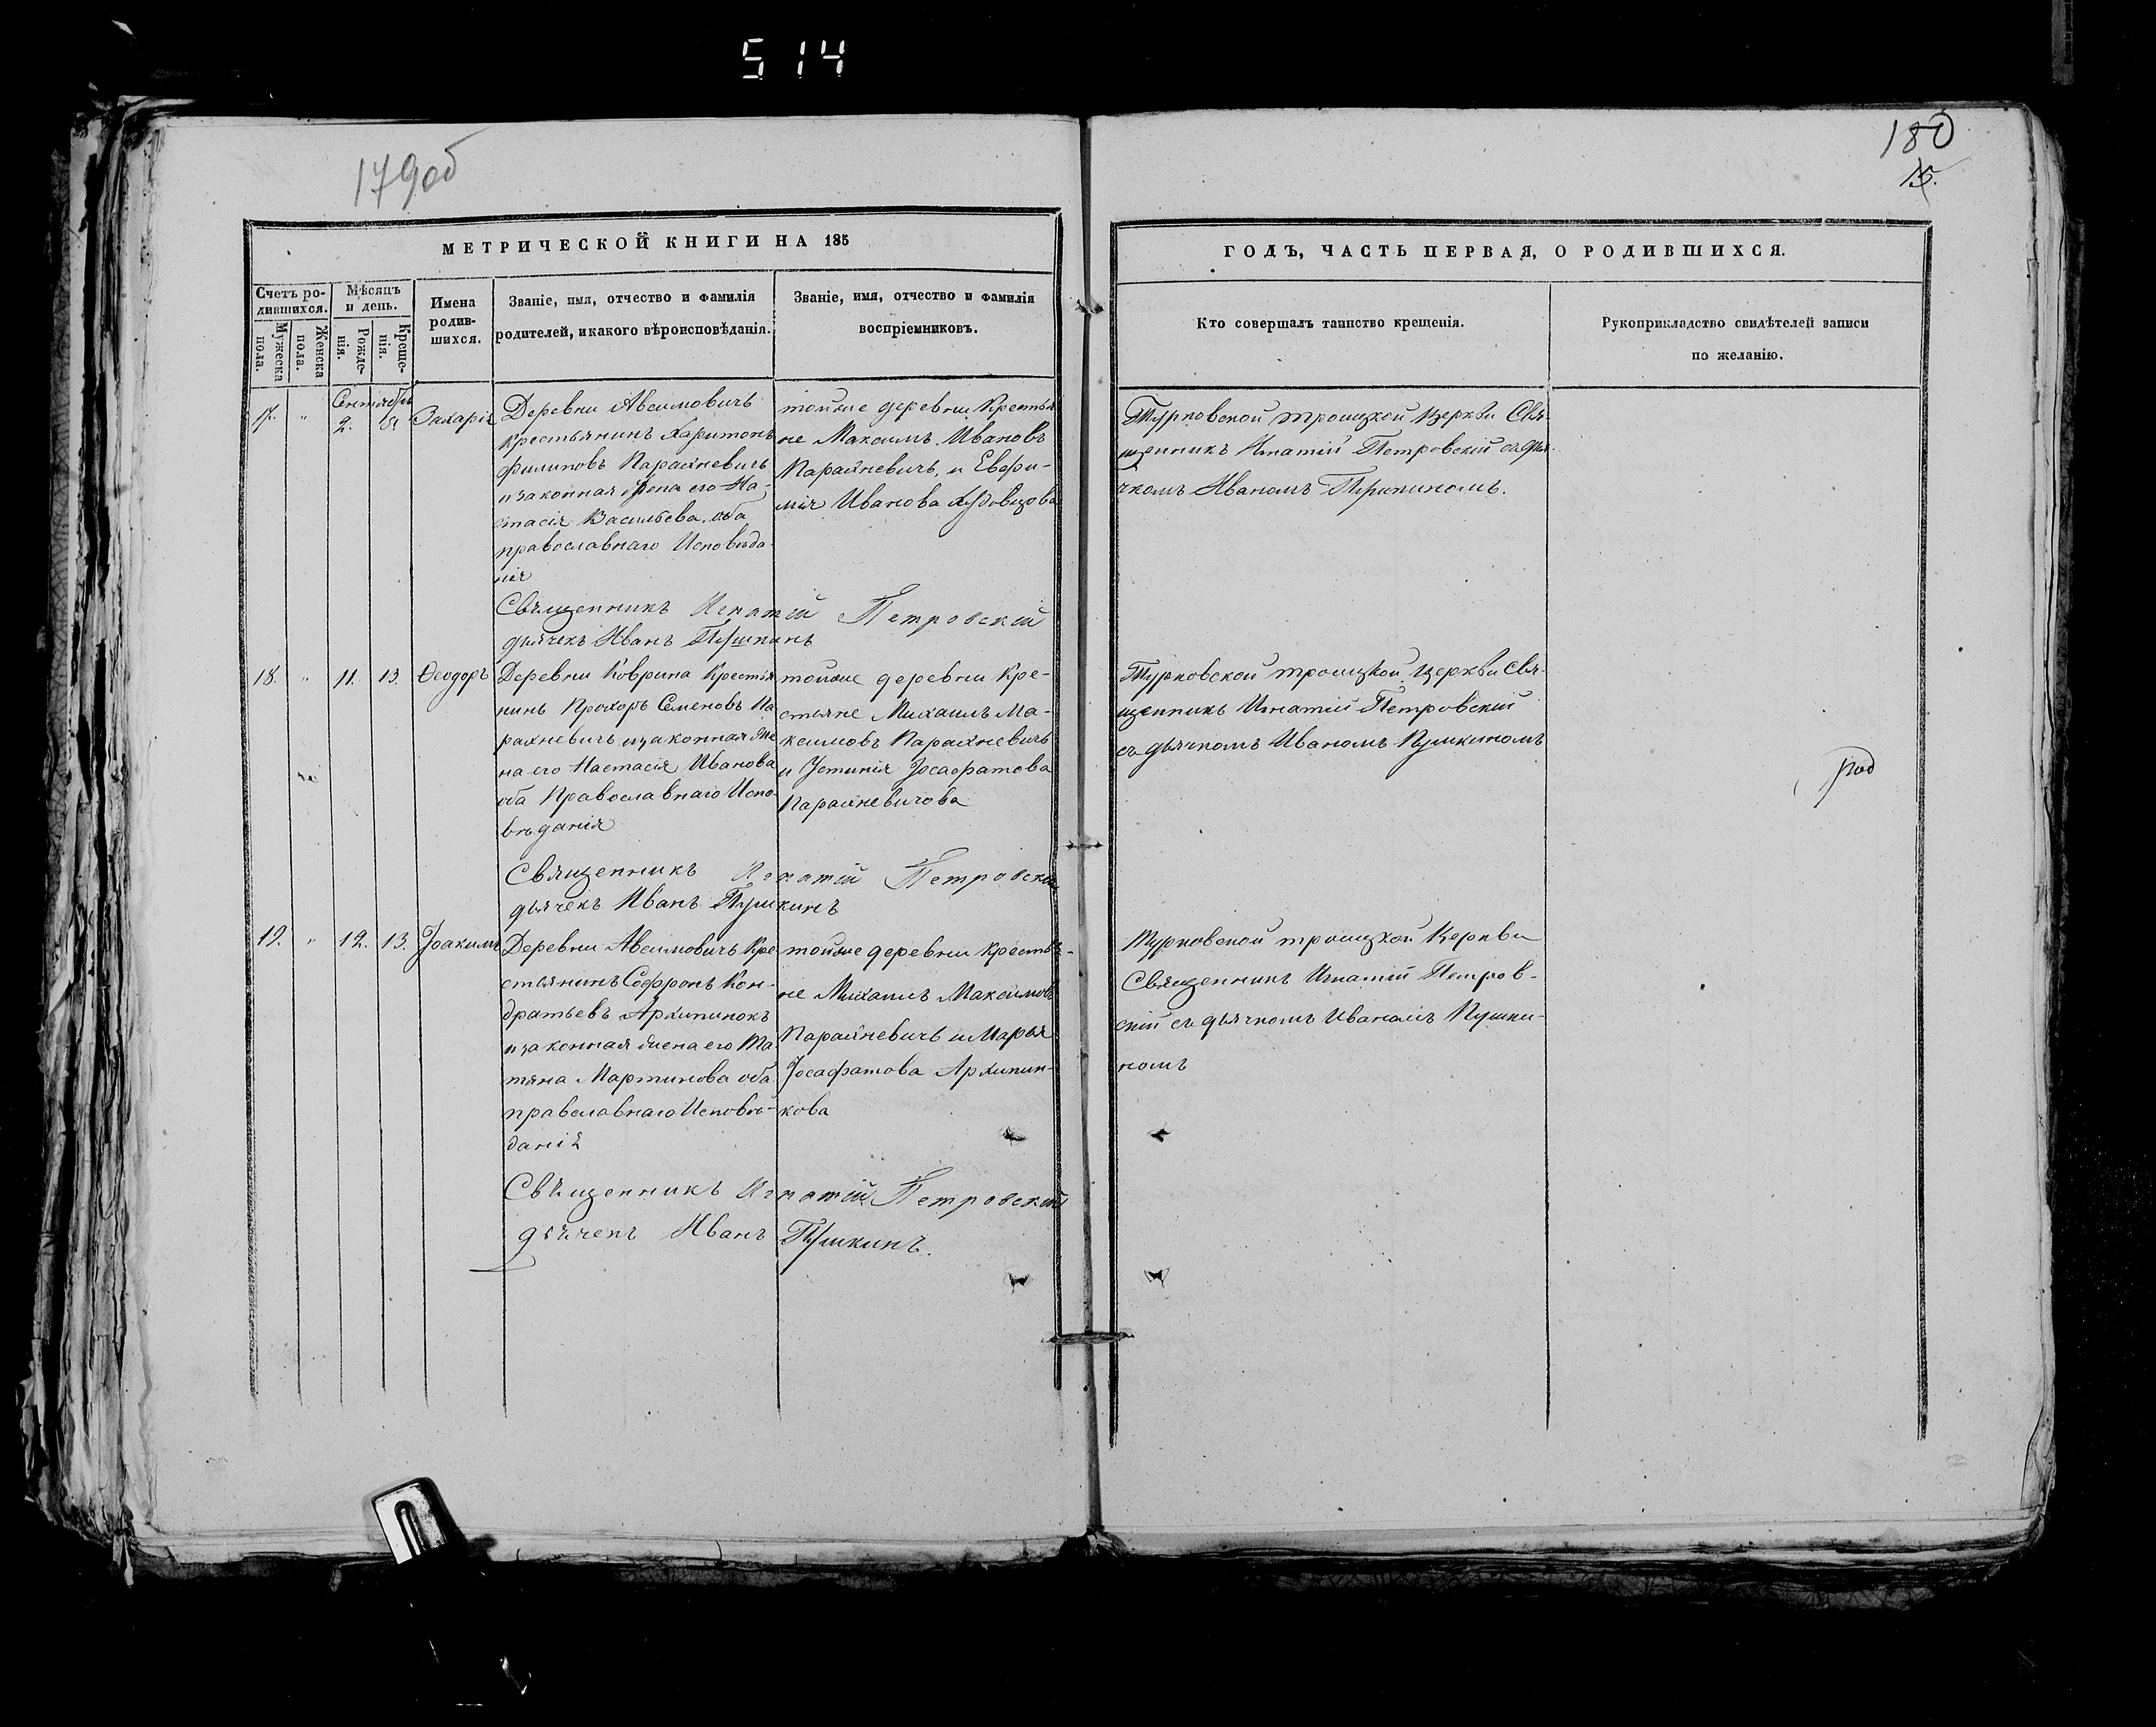 514
179об
180
15.
МЕТРИЧЕСКОЙ КНИГИ НА 185
Счетъ ро-
дившихся.
Мужеска
пола.
Женска
пола.
Мѣсяцъ
и день.
Рожде-
нія.
Креще-
нія.
Имена
родив-
шихся.
Званіе, имя, отчество и фамилія
родителей, и какого вѣроисповѣданія.
Званіе, имя, отчество и фамилія
воспріемниковъ.
ГОДЪ, ЧАСТЬ ПЕРВАЯ, О РОДИВШИХСЯ.
Кто совершалъ таинство крещенія.
Рукоприкладство свидѣтелей записи
по желанію.
Сентября
17. " 2. Захарія
Деревни Авсимовичъ
крестьянинъ Харитонъ
Филиповъ Парахневичъ
и законная жена его На-
стасія Васильева, оба
православнаго Исповѣда-
нія
тойже деревни Крестья
не Максимъ Ивановъ
Парахневичь, и Евфи-
мія Иванова
Турковской троицкой церкви Свя-
щенникъ Игнатій Петровскій съ дья-
чкомъ Иваномъ
Священникъ Игнатій Петровскій
дьячекъ Иванъ Пушкинъ
18. " 11. 13. Ѳеодоръ
Деревни Коврина Крестья
нинъ Прохоръ Семеновъ Па
рахневичъ и законная же
на его Настасія Иванова
оба Православнаго Испо-
вѣданія
тойже деревни Кре-
стьяне Михаилъ Ма-
ксимовъ Парахневичь
и Іустинія Іосафатова
Парахневичова
Турковской троицкой церкви Свя-
щенникъ Игнатій Петровскій
съ дьячкомъ Иваномъ Пушкиномъ
Священникъ Игнатій Петровскій
дьячекъ Иванъ Пушкинъ
19. " 12. 13. Іоакимъ
Деревни Авсимовичъ Кре-
стьянинъ Софронъ Кон-
дратьевъ Архипинокъ
и законная жена его Та
тяна Мартинова оба
православнаго Исповѣ-
данія
тойже деревни крестья-
не Михаилъ Максимовъ
Парахневичь и Марья
Іосафатова Архипин-
кова
Турковской троицкой Церкви
Священникъ Игнатій Петров-
скій съ дьячкомъ Иваномъ Пушки-
номъ
Священникъ Игнатій Петровскій
дьячекъ Иванъ Пушкинъ.